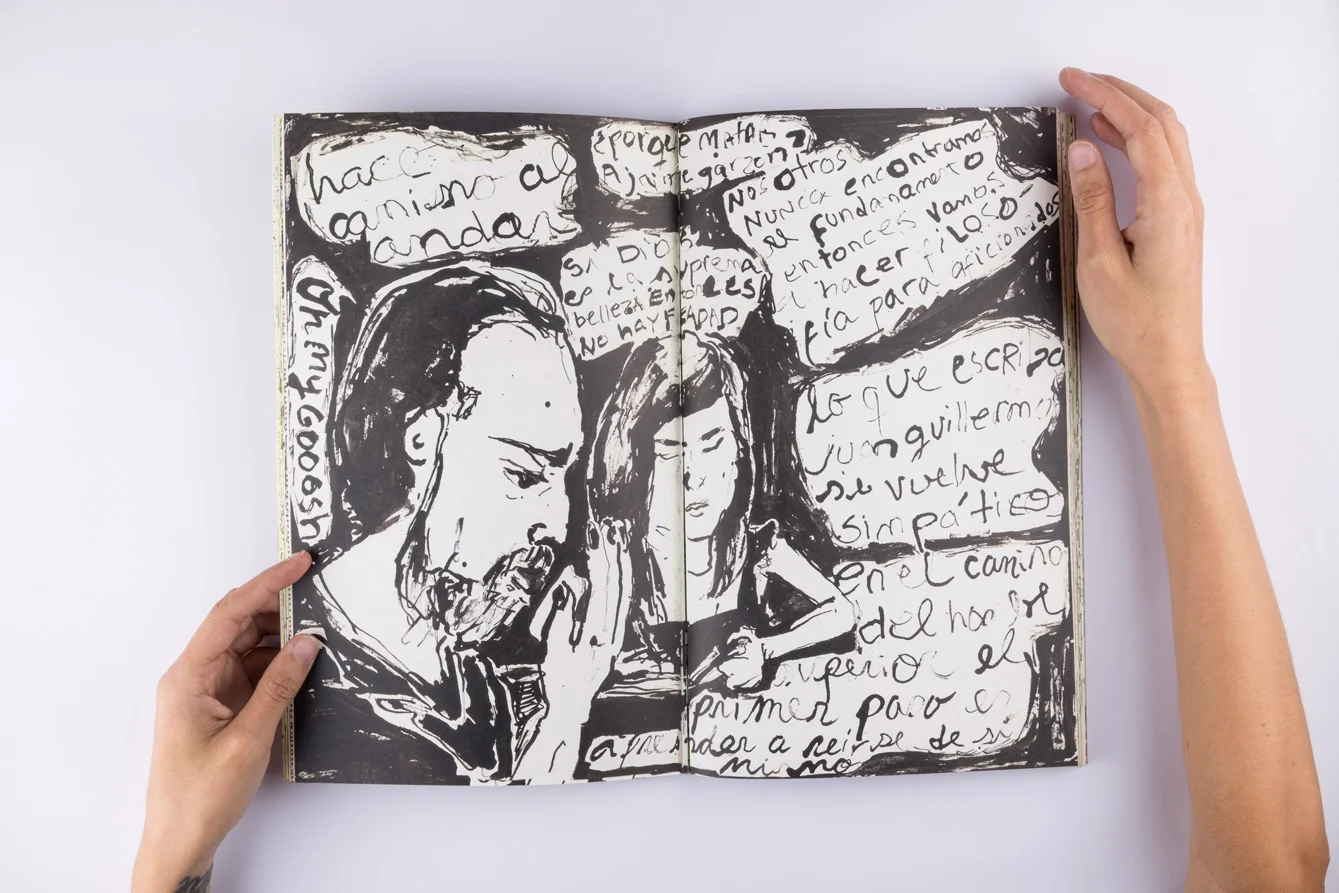 hace
camino al
andar
¿porque MATAR
A jaime garzon?
Oh my Gooosh
Si Dios
es la suprema
belleza Entonces
No hay FEALDAD
Nosotros
Nunca encontramos
el fundamento
entonces vamos
a hacer filoso-
fía para aficionados
lo que escriba
juan guillermo
si vuelve
simpático
en el camino
del hombre
superior el
primer paso es
aprender a reirse de si
mismo